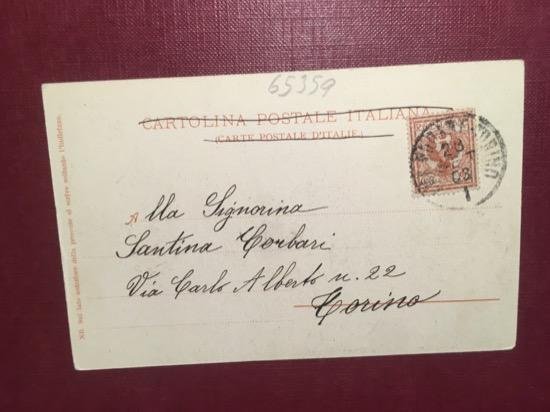 65359
CARTOLINA POSTALE ITALIANA
(CARTE POSTALE D'ITALIE)
TORINO
28
03
1
Alla Signorina
Santina Corbari
Via Carlo Alberto n. 22
Torino
NB. Sul lato anteriore della presente si scrive soltanto l'indirizzo.